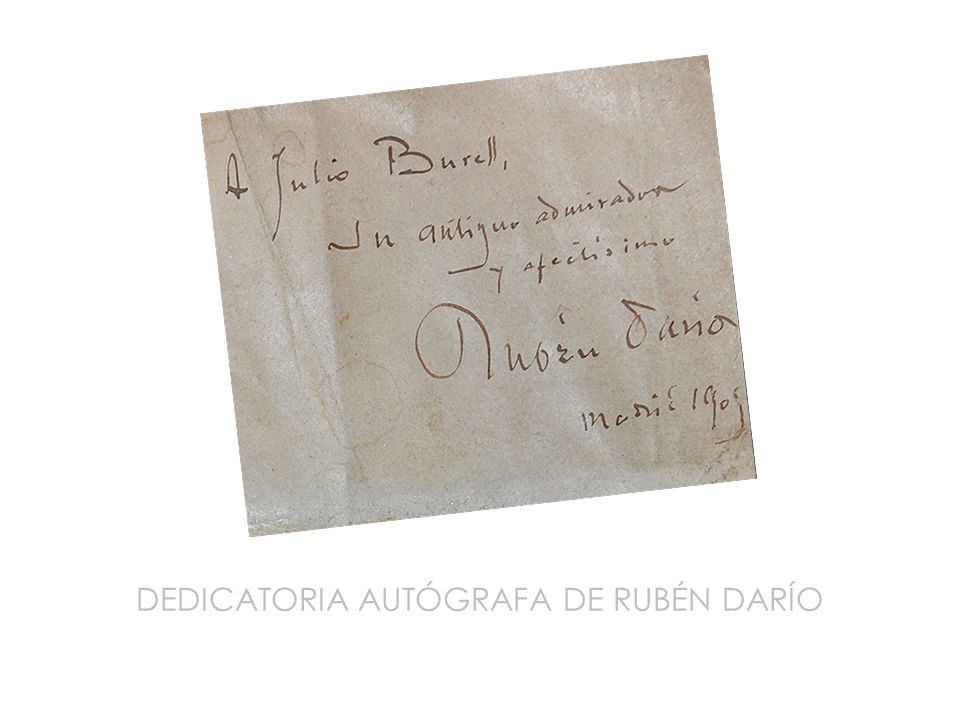 A Julio Burell,
Su antiguo admirador
y afectísimo
Rubén Darío
Madrid 1905
DEDICATORIA AUTÓGRAFA DE RUBÉN DARÍO